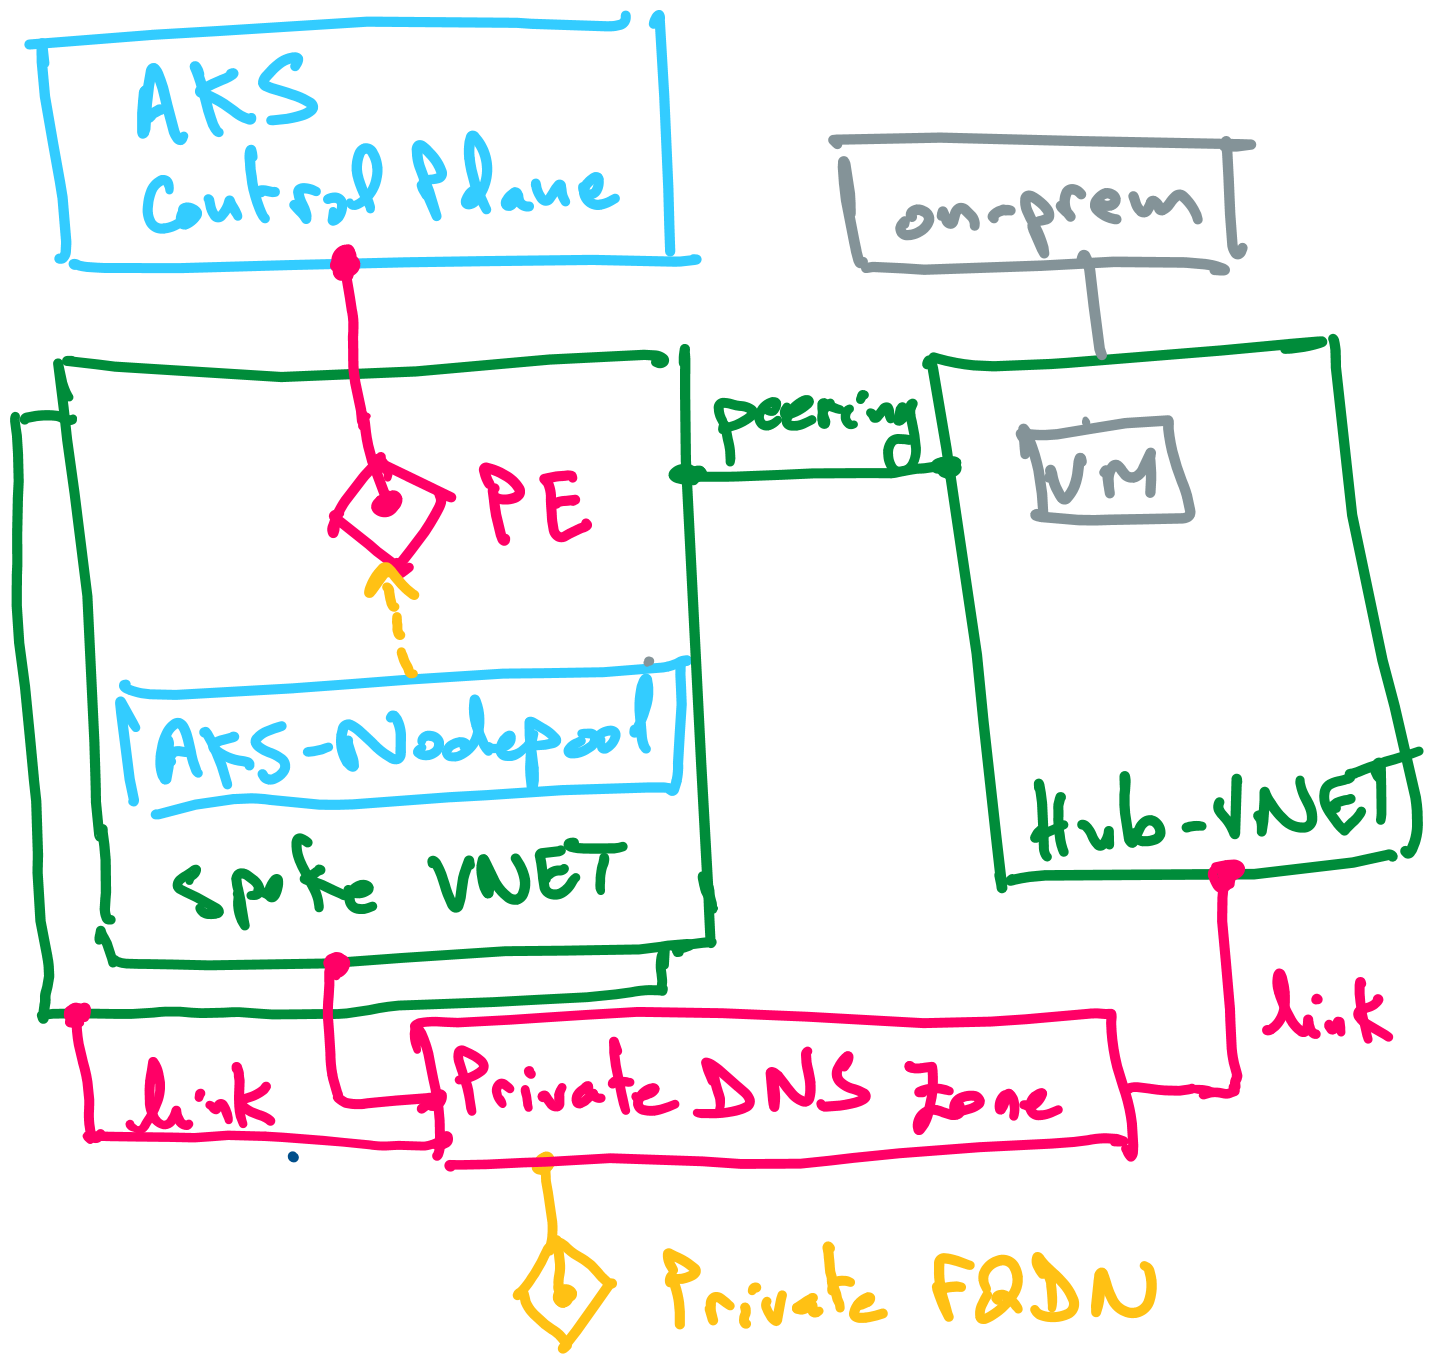 AKS
Control Plane
on-prem
peering
VM
PE
AKS-Nodepool
Hub-VNET
spoke VNET
link
link
Private DNS Zone
Private FQDN